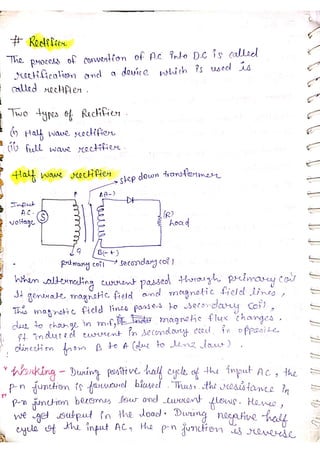 # Rectifier
The process of convertion of A.C into D.C is called
rectification and a device which is used is
called rectifier.
Two types of Rectifier.
(i) Half wave rectifier
(ii) Full wave rectifier.
Half wave rectifier
step down transformer
P
A(-)
D1
Input
A.C.
voltage
S
(R)
Load
Q
B(+)
primary coil
secondary coil
When alternating current passed through primary coil
It generate magnetic field and magnetic field lines,
This magnetic field lines passes to secondary coil,
due to change in m.f, magnetic flux changes.
It induced current in secondary coil in opposite
direction from B to A (due to lenz law).
Working - During positive half cycle of the input AC, the
p-n junction is forward biased. Thus. the resistance in
p-n junction becomes low and current flows. Hence,
we get output in the load. During negative half
cycle of the input AC, the p-n junction is reverse